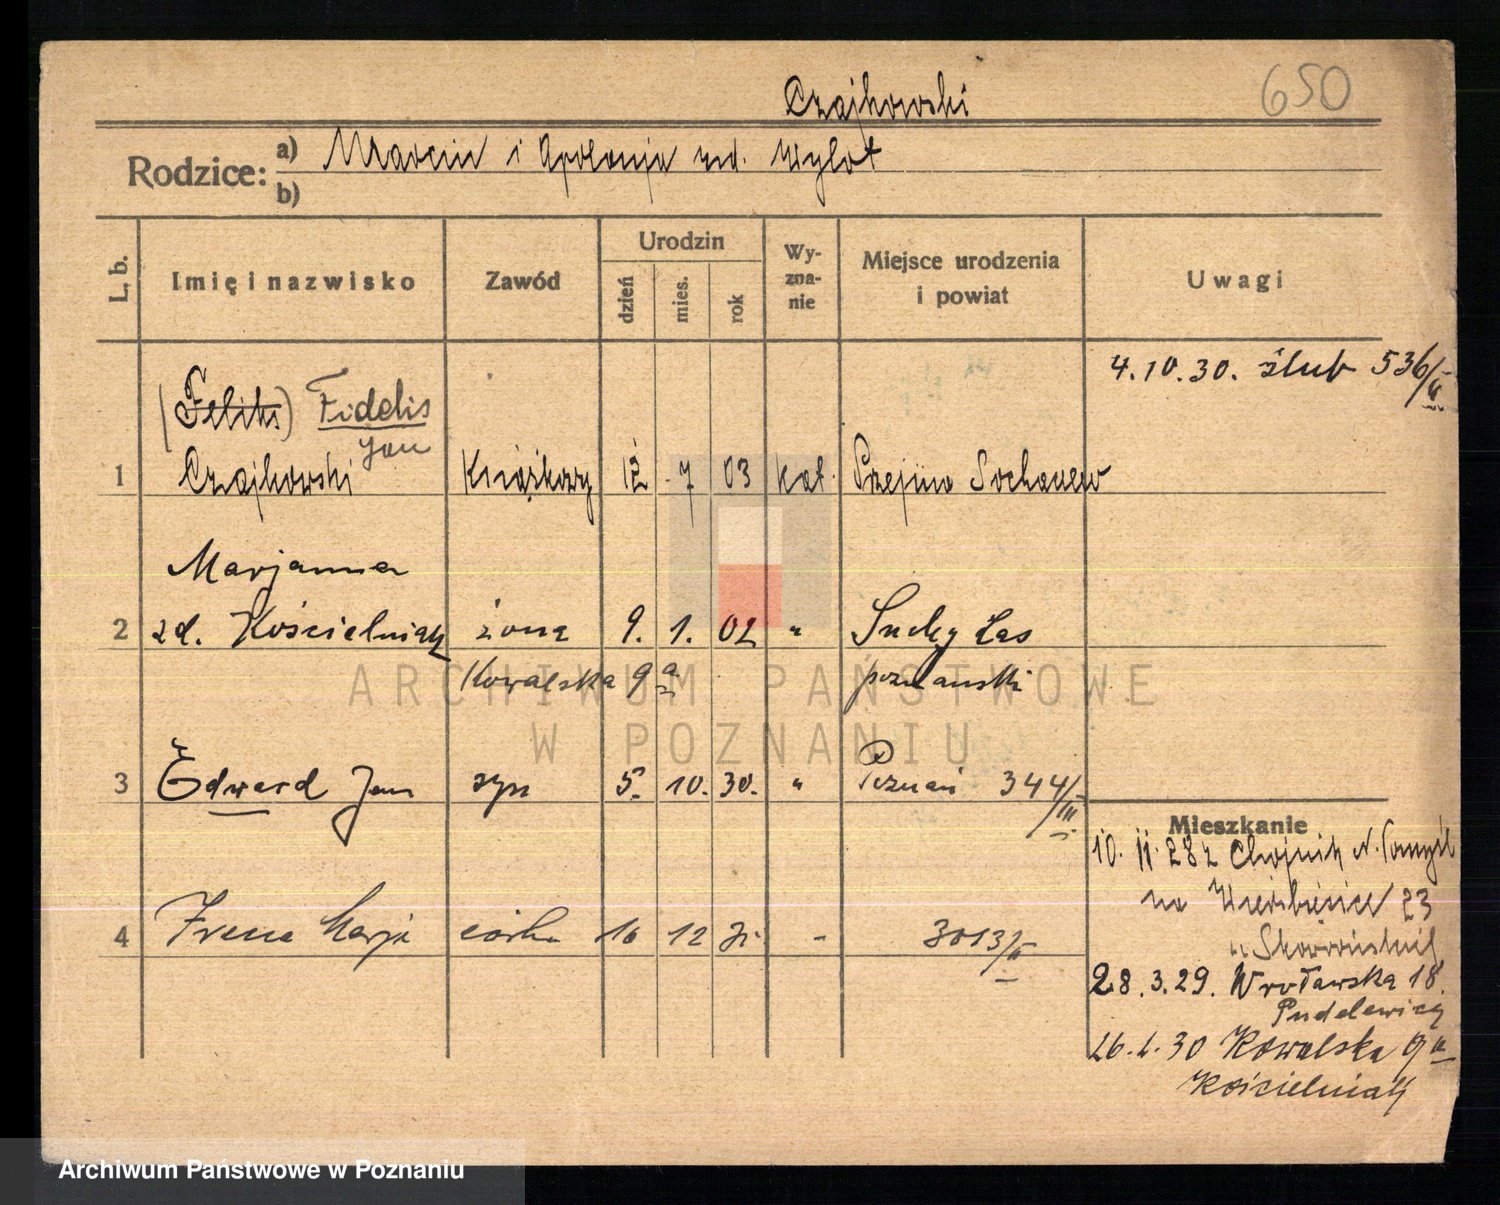 650
Czajkowski
Rodzice: a) Marcin i Apolonja zd. Wylot
b)
L. b. Imię i nazwisko Zawód Urodzin Wy-zna-nie Miejsce urodzenia i powiat Uwagi
dzień mies. rok
4.10.30. ślub 536/II
(Feliks) Fidelis
Jan
1 Czajkowski 12 7 03 kat. Sochaczew
Marjanna
2 zd. Kościelniak żona 9. 1. 02 „ Suchy Las
Kowalska 9a poznański
3 Edward Jan syn 5. 10. 30. „ Poznań 344/III
Mieszkanie
10. 11. 28 z N. Tomyśl
na Wierzbięcice 23
4 Irena Marja córka 16 12 - 3013/II
28.3.29. Wrocławska 18.
30 Kowalska 9a
Kościelniak
ARCHIWUM PAŃSTWOWE
W POZNANIU
Archiwum Państwowe w Poznaniu